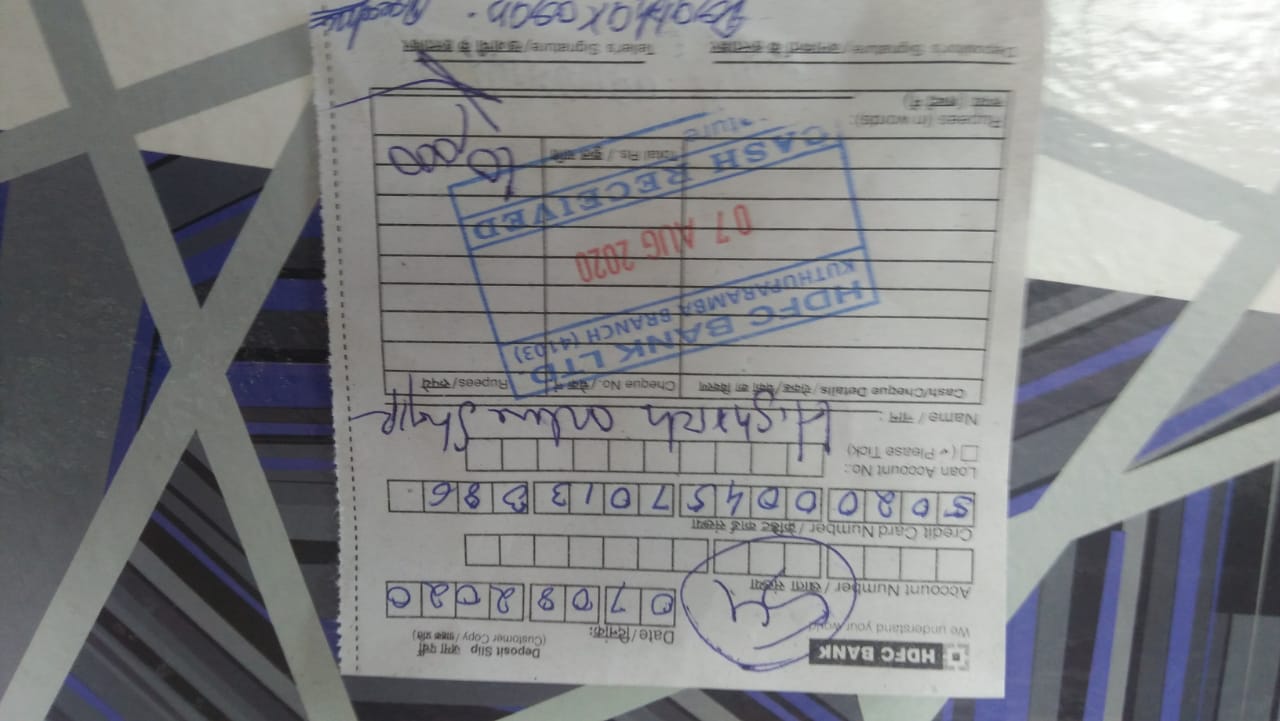 HDFC BANK
We understand your world
Deposit Slip जमा पर्ची
(Customer Copy / ग्राहक प्रति)
Date/दिनांक:
07082020
Account Number / खाता संख्या
Credit Card Number / क्रेडिट कार्ड संख्या
50200045701386
Loan Account No.:
(✓ Please Tick)
Name / नाम : Highrich online Shope
Cash/Cheque Details / रोकड/चेकों का विवरण Cheque No. / चेक नं. Rupees/रुपये
HDFC BANK LTD.
KUTHUPARAMBA BRANCH (4103)
07 AUG 2020
CASH RECEIVED
Total Rs. / कुल राशि 10,000
Rupees (in words):
रुपये (शब्दों में)
Depositor's Signature / जमाकर्ता के हस्ताक्षर Teller's Signature / खजांची के हस्ताक्षर